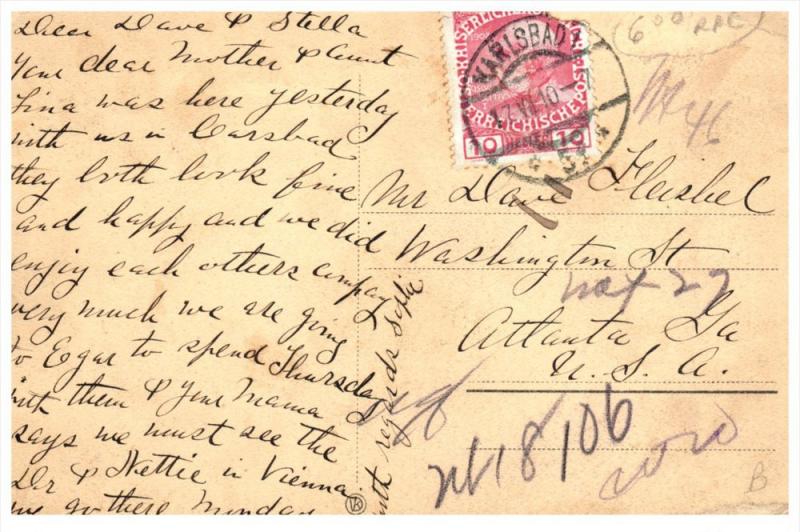 Dear Dave & Stella
Your dear Mother & Aunt
Lina was here yesterday
with us in Carsbad
they both look fine
and happy and we did
enjoy each others compay
very much we are going
to Egar to spend Thursday
with them & your Mama
says we must see the
Dr & Nettie in Vienna
we go there Monday
with regards Sophie
KARLSBAD 1
17.VI.10
10 HELLER 10
Mr Dave Fleishel
Washington St
Atlanta Ga
U. S. A.
not 27
18/106
46
B